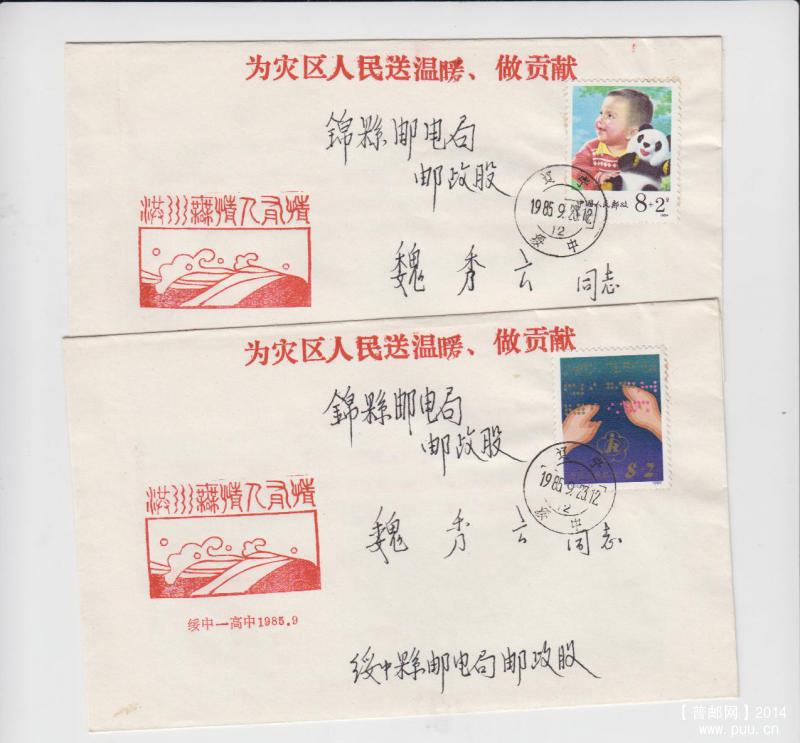 为灾区人民送温暖、做贡献
錦縣邮电局
邮政股
中国人民邮政
8+2分
1984
辽宁
1985.9.23.12
12
绥中
洪水無情人有情
魏秀云 同志
为灾区人民送温暖、做贡献
錦縣邮电局
邮政股
8+2
辽宁
1985.9.23.12
12
绥中
洪水無情人有情
魏秀云 同志
绥中一高中1985.9
绥中縣邮电局邮政股
【普邮网】2014
www.puu.cn